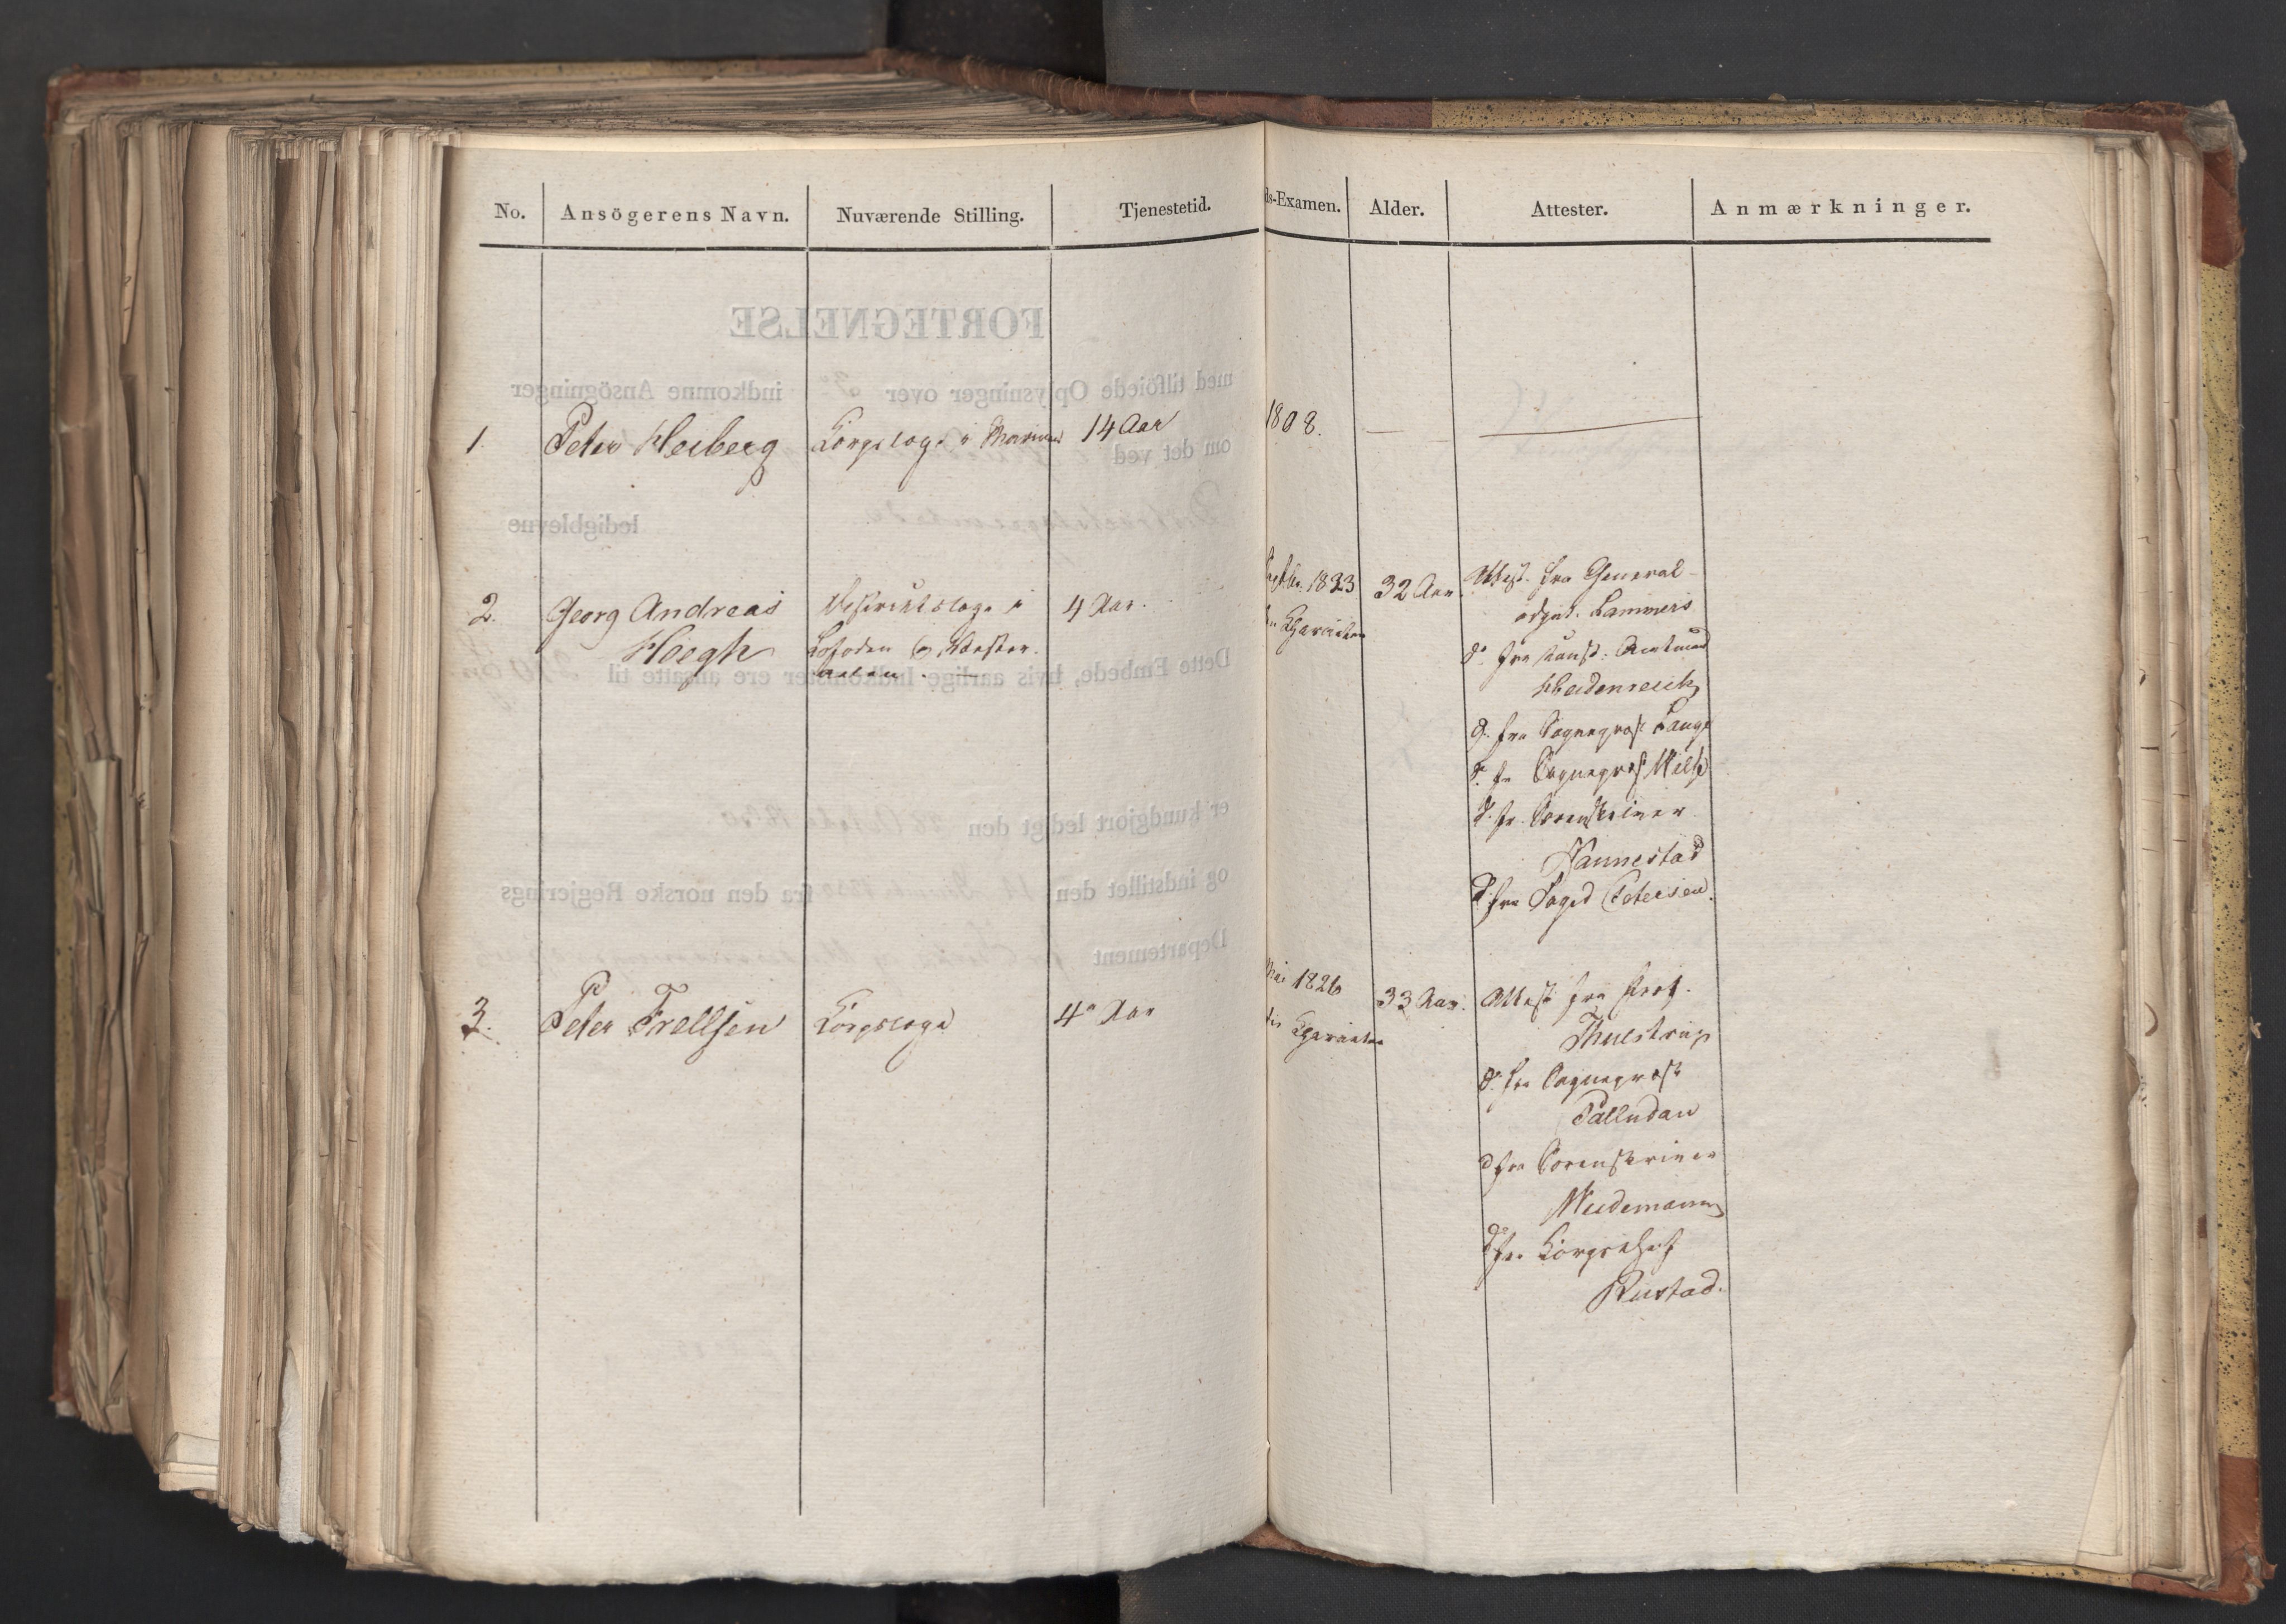 No. Ansögerens Navn. Nuværende Stilling. Tjenestetid. ds-Examen. Alder. Attester. Anmærkninger.
1. Peter Heiberg Korpslæge i Marinen 14 Aar 1808. — —
2. Georg Andreas Høegh
Districtslæge i Lofoden og Vesteraalen. 4 Aar.
Septbr. 1823
32 Aar.
Attest. fra General-
adjut. Lammers
do. fra const. Amtmand
Heidenreich
do. fra Sogneprest Lange
do. fr. Sogneprest
do. fr. Sorenskriver
Nannestad
do. fra Foged Petersen.
3. Peter Frellsen Korpslæge 4 Aar
Mai 1826
33 Aar.
Attest fra Prof.
Thulstrup
do. fra Sogneprest
Palludan
do fra Sorenskriver
Weidemann
do fra Korpschef
Rustad.
FORTEGNELSE
med tilföiede Oplysninger over indkomne Ansögninger
om det ved
ledigblevne
Dette Embede, hvis aarlige Indkomster ere ansatte til
er kundgjort ledigt den
og indstillet den fra den norske Regjerings
Departement